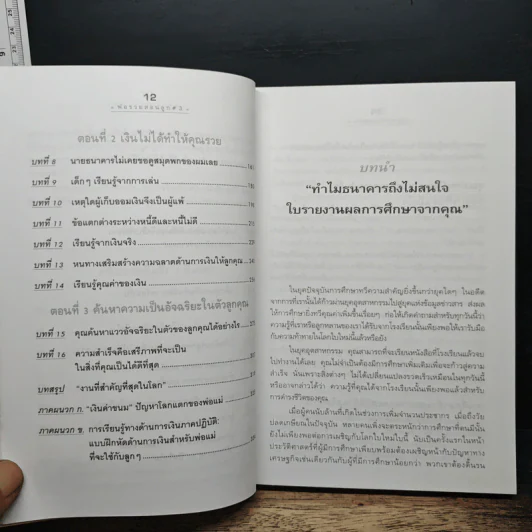 12
พ่อรวยสอนลูก # 2
ตอนที่ 2 เงินไม่ได้ทำให้คุณรวย
บทที่ 8 นายธนาคารไม่เคยขอดูสมุดพกของผมเลย
บทที่ 9 เด็กๆ เรียนรู้จากการเล่น
บทที่ 10 เหตุใดผู้เก็บออมเงินจึงเป็นผู้แพ้
บทที่ 11 ข้อแตกต่างระหว่างหนี้ดีและหนี้ไม่ดี
บทที่ 12 เรียนรู้จากเงินจริง
บทที่ 13 หนทางเสริมสร้างความฉลาดด้านการเงินให้ลูกคุณ
บทที่ 14 เรียนรู้คุณค่าของเงิน
ตอนที่ 3 ค้นหาความเป็นอัจฉริยะในตัวลูกคุณ
บทที่ 15 คุณค้นหาแววอัจฉริยะในตัวของลูกคุณได้อย่างไร
บทที่ 16 ความสำเร็จคือเสรีภาพที่จะเป็น
ในสิ่งที่คุณเป็นได้ดีที่สุด
บทสรุป "งานที่สำคัญที่สุดในโลก"
ภาคผนวก ก. "เงินค่าขนม" ปัญหาโลกแตกของพ่อแม่
ภาคผนวก ข. การเรียนรู้ทางด้านการเงินภาคปฏิบัติ:
แบบฝึกหัดด้านการเงินสำหรับพ่อแม่
ที่จะใช้กับลูกๆ
บทนำ
"ทำไมธนาคารถึงไม่สนใจ
ใบรายงานผลการศึกษาจากคุณ"
ในยุคปัจจุบันการศึกษาทวีความสำคัญยิ่งขึ้นกว่ายุคใดๆ ในอดีต
จากการที่เรานั้นได้ก้าวผ่านยุคอุตสาหกรรมไปสู่ยุคแห่งข้อมูลข่าวสาร ส่งผล
ให้การศึกษายิ่งทวีคุณค่าเพิ่มขึ้นเรื่อยๆ ก่อให้เกิดคำถามสำหรับทุกวันนี้ว่า
ความรู้ที่เราหรือลูกหลานของเราได้รับจากโรงเรียนนั้นเพียงพอให้เรารับมือ
กับความท้าทายในโลกใบใหม่นี้แล้วหรือยัง
ในยุคอุตสาหกรรม คุณสามารถที่จะเรียนหนังสือที่โรงเรียนแล้วจบ
ไปทำงานได้เลย คุณไม่จำเป็นต้องมีการศึกษาเพิ่มเติมเพื่อจะก้าวสู่ความ
สำเร็จ นั่นเพราะสิ่งต่างๆ ไม่ได้เปลี่ยนแปลงรวดเร็วเหมือนในทุกวันนี้
หรืออาจกล่าวได้ว่า ความรู้ที่คุณได้จากโรงเรียนนั้นเพียงพอแล้วสำหรับ
การดำรงชีวิตของคุณ
เมื่อผู้คนนับล้านที่เกิดในช่วงการเพิ่มจำนวนประชากร เมื่อถึงวัย
ปลดเกษียณในปัจจุบัน หลายคนเพิ่งจะตระหนักว่าการศึกษาที่ตนมีนั้น
ยังไม่เพียงพอต่อการเผชิญกับโลกใบใหม่ใบนี้ นับเป็นครั้งแรกในหน้า
ประวัติศาสตร์ที่ผู้มีการศึกษาเพียบพร้อมต้องเผชิญหน้ากับปัญหาทาง
เศรษฐกิจเช่นเดียวกันกับผู้ที่มีการศึกษาน้อยกว่า พวกเขาต้องดิ้นรน